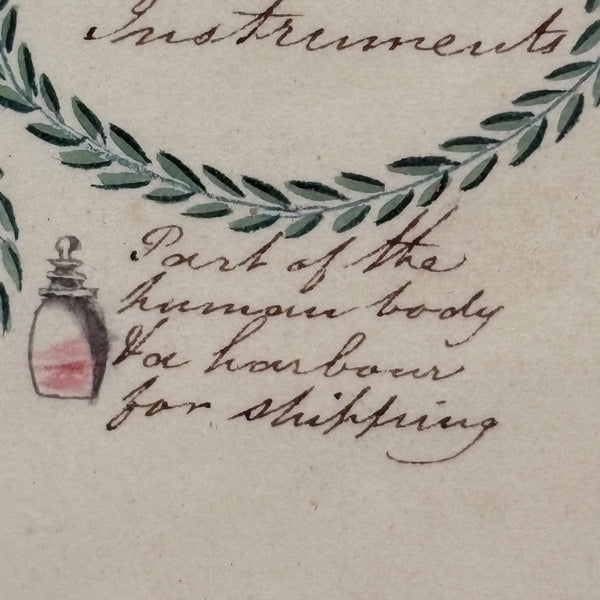 Instruments
Part of the
human body
& a harbour
for shipping